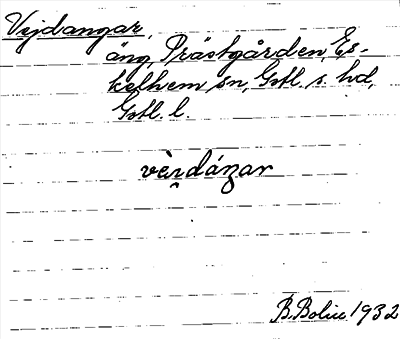 Vejdangar,
äng, Prästgården, Es-
kelhem sn, Gotl. s. hd,
Gotl. l.
B. Bolin 1932